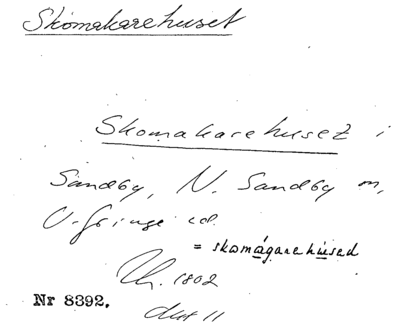 Skomakarehuset
Skomakarehuset i
Sandby, N. Sandby sn,
V. Göinge hd.
= skomágarehúsed
Th. 1802
Nr 8392.